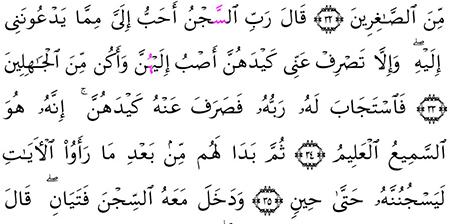 مِّنَ ٱلصَّٰغِرِينَ ﴿٣٢﴾ قَالَ رَبِّ ٱلسَّجْنُ أَحَبُّ إِلَىَّ مِمَّا يَدْعُونَنِىٓ
إِلَيْهِ ۖ وَإِلَّا تَصْرِفْ عَنِّى كَيْدَهُنَّ أَصْبُ إِلَيْهُنَّ وَأَكُن مِّنَ ٱلْجَٰهِلِينَ
﴿٣٣﴾ فَٱسْتَجَابَ لَهُۥ رَبُّهُۥ فَصَرَفَ عَنْهُ كَيْدَهُنَّ ۚ إِنَّهُۥ هُوَ
ٱلسَّمِيعُ ٱلْعَلِيمُ ﴿٣٤﴾ ثُمَّ بَدَا لَهُم مِّنۢ بَعْدِ مَا رَأَوُا۟ ٱلْءَايَٰتِ
لَيَسْجُنُنَّهُۥ حَتَّىٰ حِينٍ ﴿٣٥﴾ وَدَخَلَ مَعَهُ ٱلسِّجْنَ فَتَيَانِ ۖ قَالَ